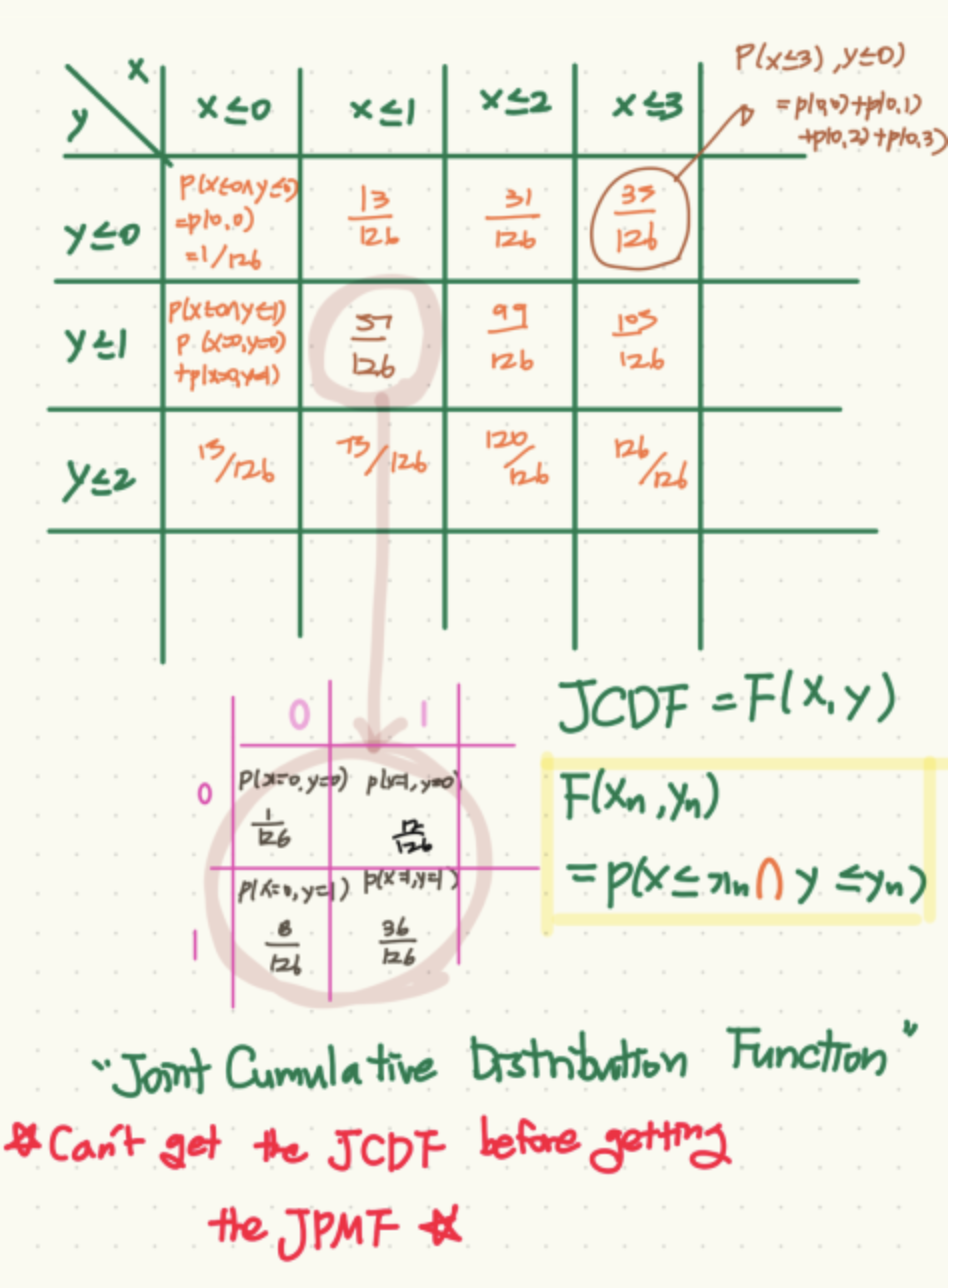 P(x≤3), y≤0)
= p(0,0)+p(0,1)
+p(0,2)+p(0,3)
x
y
x≤0 x≤1 x≤2 x≤3
y≤0
P(x≤0∩y≤0)
=p(0,0)
=1/126
13/126
31/126
35/126
y≤1
P(x≤0∩y≤1)
P (x=0,y=0)
+p(x=0,y=1)
57/126
99/126
105/126
y≤2
15/126
73/126
120/126
126/126
0 1
0
P(x=0, y=0) p(x=1, y=0)
1/126 12/126
1
p(x=0, y=1) p(x=1,y=1)
8/126 36/126
JCDF = F(x, y)
F(xn, yn)
= p(x≤xn ∩ y≤yn)
"Joint Cumulative Distribution Function"
☆ Can't get the JCDF before getting
the JPMF ☆